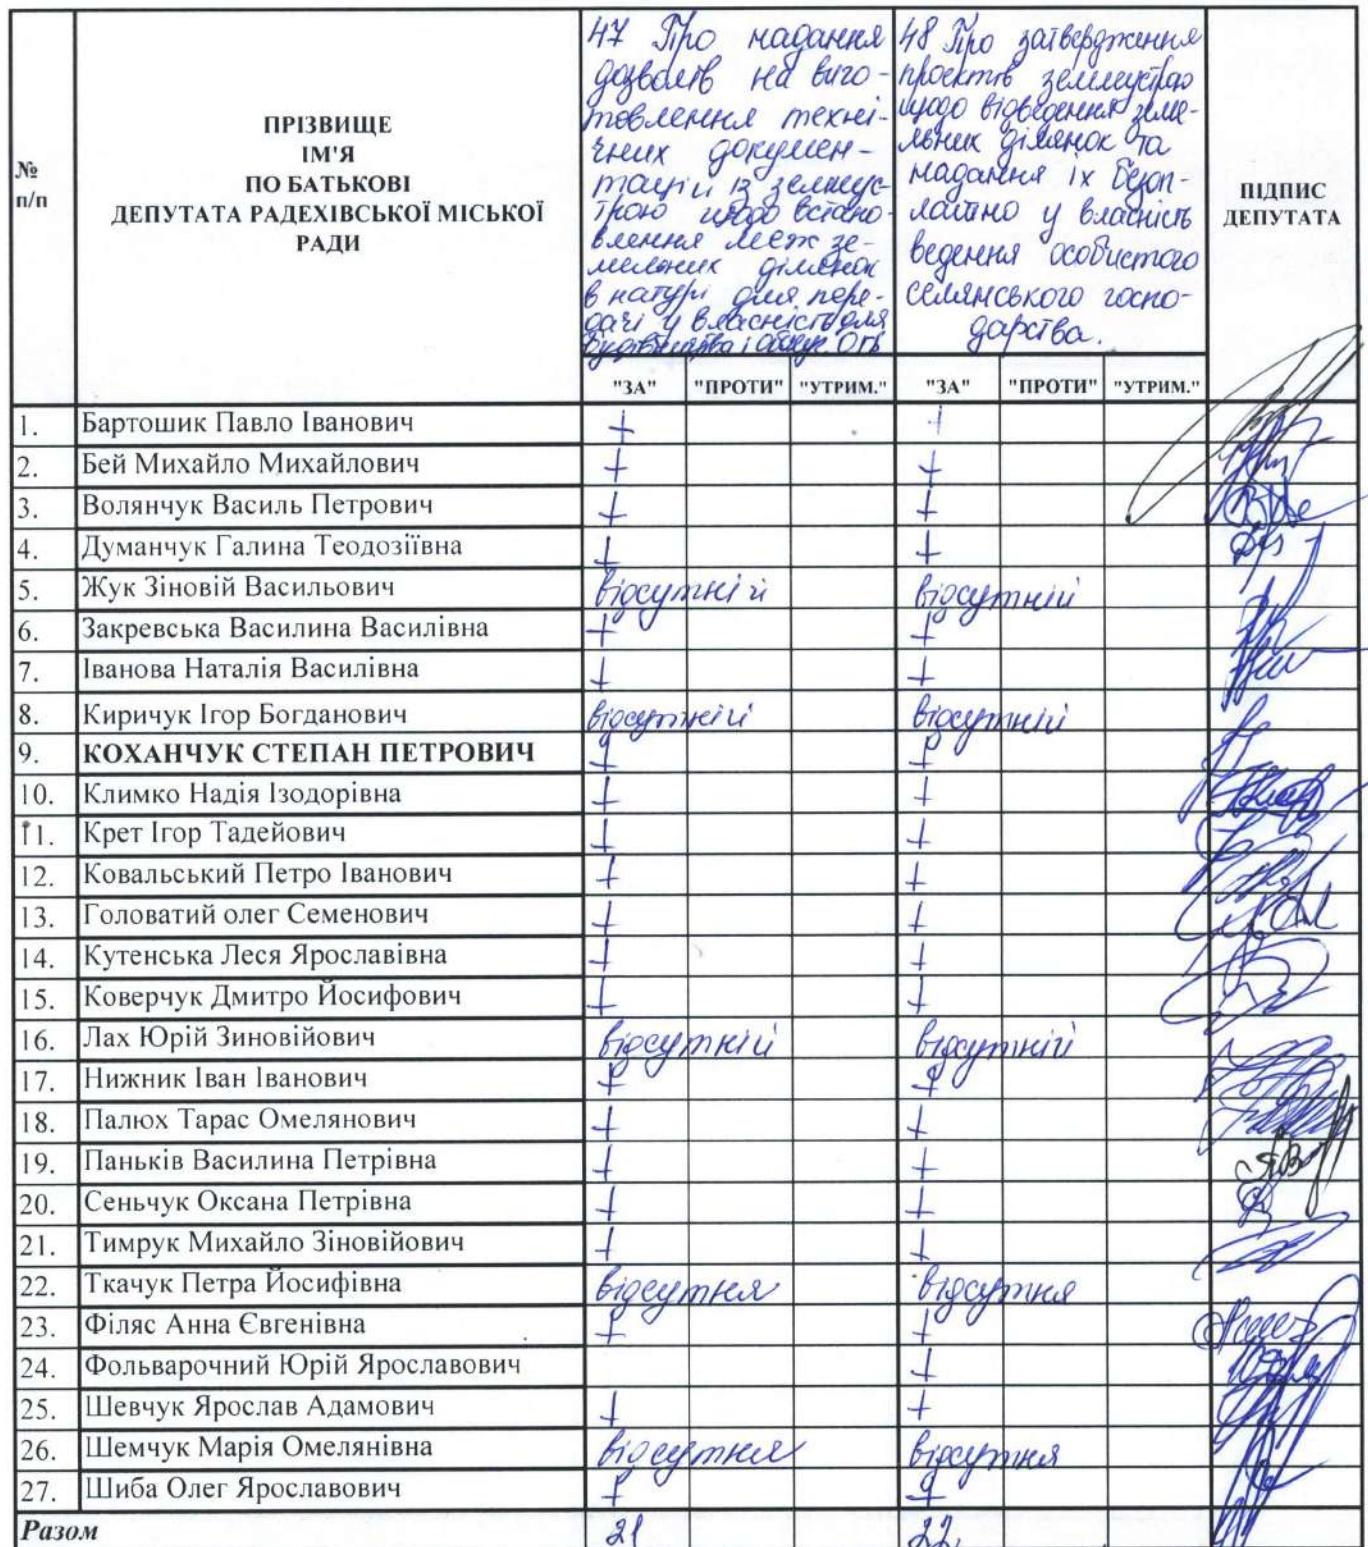 №
п/п
ПРІЗВИЩЕ
ІМ'Я
ПО БАТЬКОВІ
ДЕПУТАТА РАДЕХІВСЬКОЇ МІСЬКОЇ
РАДИ
47 Про надання
дозволів на виго-
товлення техні-
чних докумен-
тацій із землеус-
трою щодо встано-
влення меж зе-
мельних ділянок
в натурі для пере-
дачі у власність для
будівництва і обслуг. ОГБ
48 Про затвердження
проектів землеустрою
щодо відведення земе-
льних ділянок та
надання їх безоп-
латно у власність
ведення особистого
селянського госпо-
дарства.
ПІДПИС
ДЕПУТАТА
"ЗА" "ПРОТИ" "УТРИМ." "ЗА" "ПРОТИ" "УТРИМ."
1. Бартошик Павло Іванович + +
2. Бей Михайло Михайлович + +
3. Волянчук Василь Петрович + +
4. Думанчук Галина Теодозіївна + +
5. Жук Зіновій Васильович відсутній відсутній
6. Закревська Василина Василівна + +
7. Іванова Наталія Василівна + +
8. Киричук Ігор Богданович відсутній відсутній
9. КОХАНЧУК СТЕПАН ПЕТРОВИЧ + +
10. Климко Надія Ізодорівна + +
11. Крет Ігор Тадейович + +
12. Ковальський Петро Іванович + +
13. Головатий олег Семенович + +
14. Кутенська Леся Ярославівна + +
15. Коверчук Дмитро Йосифович + +
16. Лах Юрій Зиновійович відсутній відсутній
17. Нижник Іван Іванович + +
18. Палюх Тарас Омелянович + +
19. Паньків Василина Петрівна + +
20. Сеньчук Оксана Петрівна + +
21. Тимрук Михайло Зіновійович + +
22. Ткачук Петра Йосифівна відсутня відсутня
23. Філяс Анна Євгенівна + +
24. Фольварочний Юрій Ярославович +
25. Шевчук Ярослав Адамович + +
26. Шемчук Марія Омелянівна відсутня відсутня
27. Шиба Олег Ярославович + +
Разом 21 22.